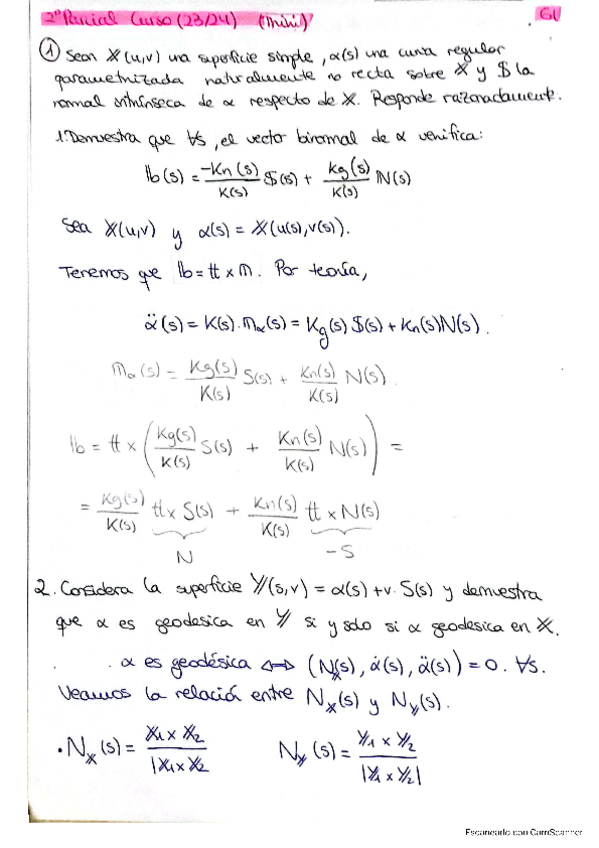 2º Parcial Curso (23/24) (Mini) G1
① Sean X(u,v) una superficie simple, α(s) una curva regular
parametrizada naturalmente no recta sobre X y S la
normal intrínseca de α respecto de X. Responde razonadamente.
1. Demuestra que ∀s, el vector binormal de α verifica:
b(s) = -Kn(s)/K(s) S(s) + kg(s)/K(s) N(s)
Sea X(u,v) y α(s) = X(u(s),v(s)).
Tenemos que b = t x n. Por teoría,
α̈(s) = K(s)·nα(s) = Kg(s) S(s) + Kn(s)N(s).
nα(s) = Kg(s)/K(s) S(s) + Kn(s)/K(s) N(s).
b = t x (Kg(s)/K(s) S(s) + Kn(s)/K(s) N(s)) =
= Kg(s)/K(s) t x S(s) + Kn(s)/K(s) t x N(s)
N -S
2. Considera la superficie Y(s,v) = α(s) + v · S(s) y demuestra
que α es geodesica en Y si y solo si α geodesica en X.
. . α es geodésica ⟺ (N(s), α̇(s), α̈(s)) = 0. ∀s.
Veamos la relación entre Nx(s) y Ny(s).
· Nx(s) = X1 x X2 / |X1 x X2 Ny(s) = Y1 x Y2 / |Y1 x Y2|
Escaneado con CamScanner